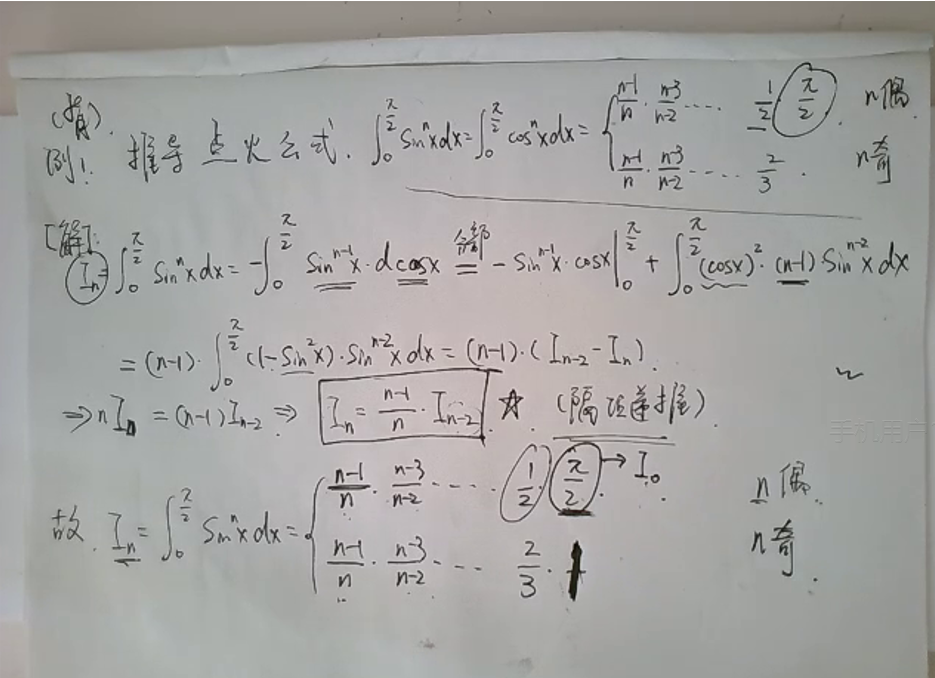 例1. 推导点火公式. ∫₀^{π/2} sinⁿx dx = ∫₀^{π/2} cosⁿx dx = { (n-1)/n · (n-3)/(n-2) ····· 1/2 · π/2 . n偶
(n-1)/n · (n-3)/(n-2) ····· 2/3 . n奇
[解]: Iₙ = ∫₀^{π/2} sinⁿx dx = -∫₀^{π/2} sin^{n-1}x · d cosx 分部= - sin^{n-1}x · cosx |₀^{π/2} + ∫₀^{π/2} (cosx)² · (n-1) sin^{n-2}x dx
= (n-1) · ∫₀^{π/2} (1-sin²x) · sin^{n-2}x dx = (n-1) · (I_{n-2} - Iₙ).
⇒ nIₙ = (n-1)I_{n-2} ⇒ Iₙ = (n-1)/n · I_{n-2} ☆ . (隔项递推).
故. Iₙ = ∫₀^{π/2} sinⁿx dx = { (n-1)/n · (n-3)/(n-2) ····· 1/2 · π/2 → I₀ . n偶.
(n-1)/n · (n-3)/(n-2) ····· 2/3 · 1 n奇.
手机用户